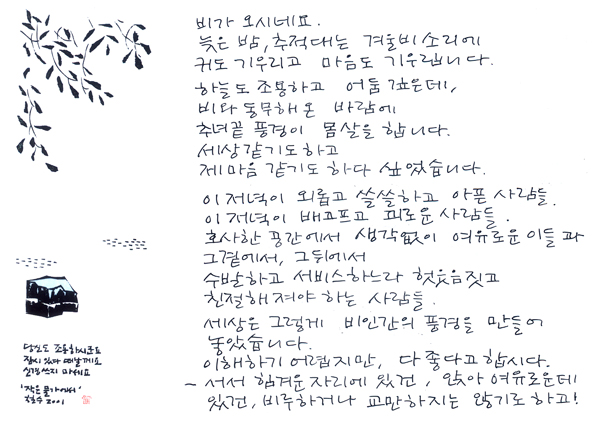 비가 오시네요.
늦은 밤, 추적대는 겨울비 소리에
귀도 기우리고 마음도 기우립니다.
하늘도 조용하고 어둠 깊은데,
비와 동무해 온 바람에
추녀끝 풍경이 몸살을 합니다.
세상같기도하고
제 마음 같기도 하다 싶었습니다.
이 저녁이 외롭고 쓸쓸하고 아픈 사람들.
이 저녁이 배고프고 괴로운 사람들.
호사한 공간에서 생각없이 여유로운 이들과
그곁에서, 그뒤에서
수발하고 서비스하느라 헛웃음짓고
친절해져야 하는 사람들.
세상은 그렇게 비인간의 풍경을 만들어
놓았습니다.
이해하기 어렵지만, 다 좋다고 합시다.
~ 서서 힘겨운 자리에 있건, 앉아 여유로운데
있건, 비루하거나 교만하지는 않기로 하고!
당신도 조용하시군요
잠시 있다 떠날게요
신경쓰지 마세요
'작은 물가에서'
철수 2001